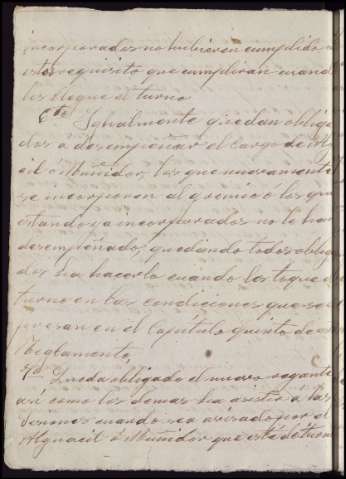 incorporados no hubieren cumplido
este requisito que cumpliran cuand
les llegue el turno
6ª Igualmente quedan obliga
dos a desempeñar el cargo de Al
cil o Muñidor los que nuevamente
se incorporen al gremio ó los que
estando ya incorporados no le han
desempeñado, quedando todos obliga
dos ha hacerlo cuando les toque el
turno en las condiciones que se es
presan en el Capítulo quinto de es
Reglamento,
7ª Queda obligado el nuevo
así como los demas ha asistir á las
cuando sea avisado por el
Alguacil ó Muñidor que está de turn